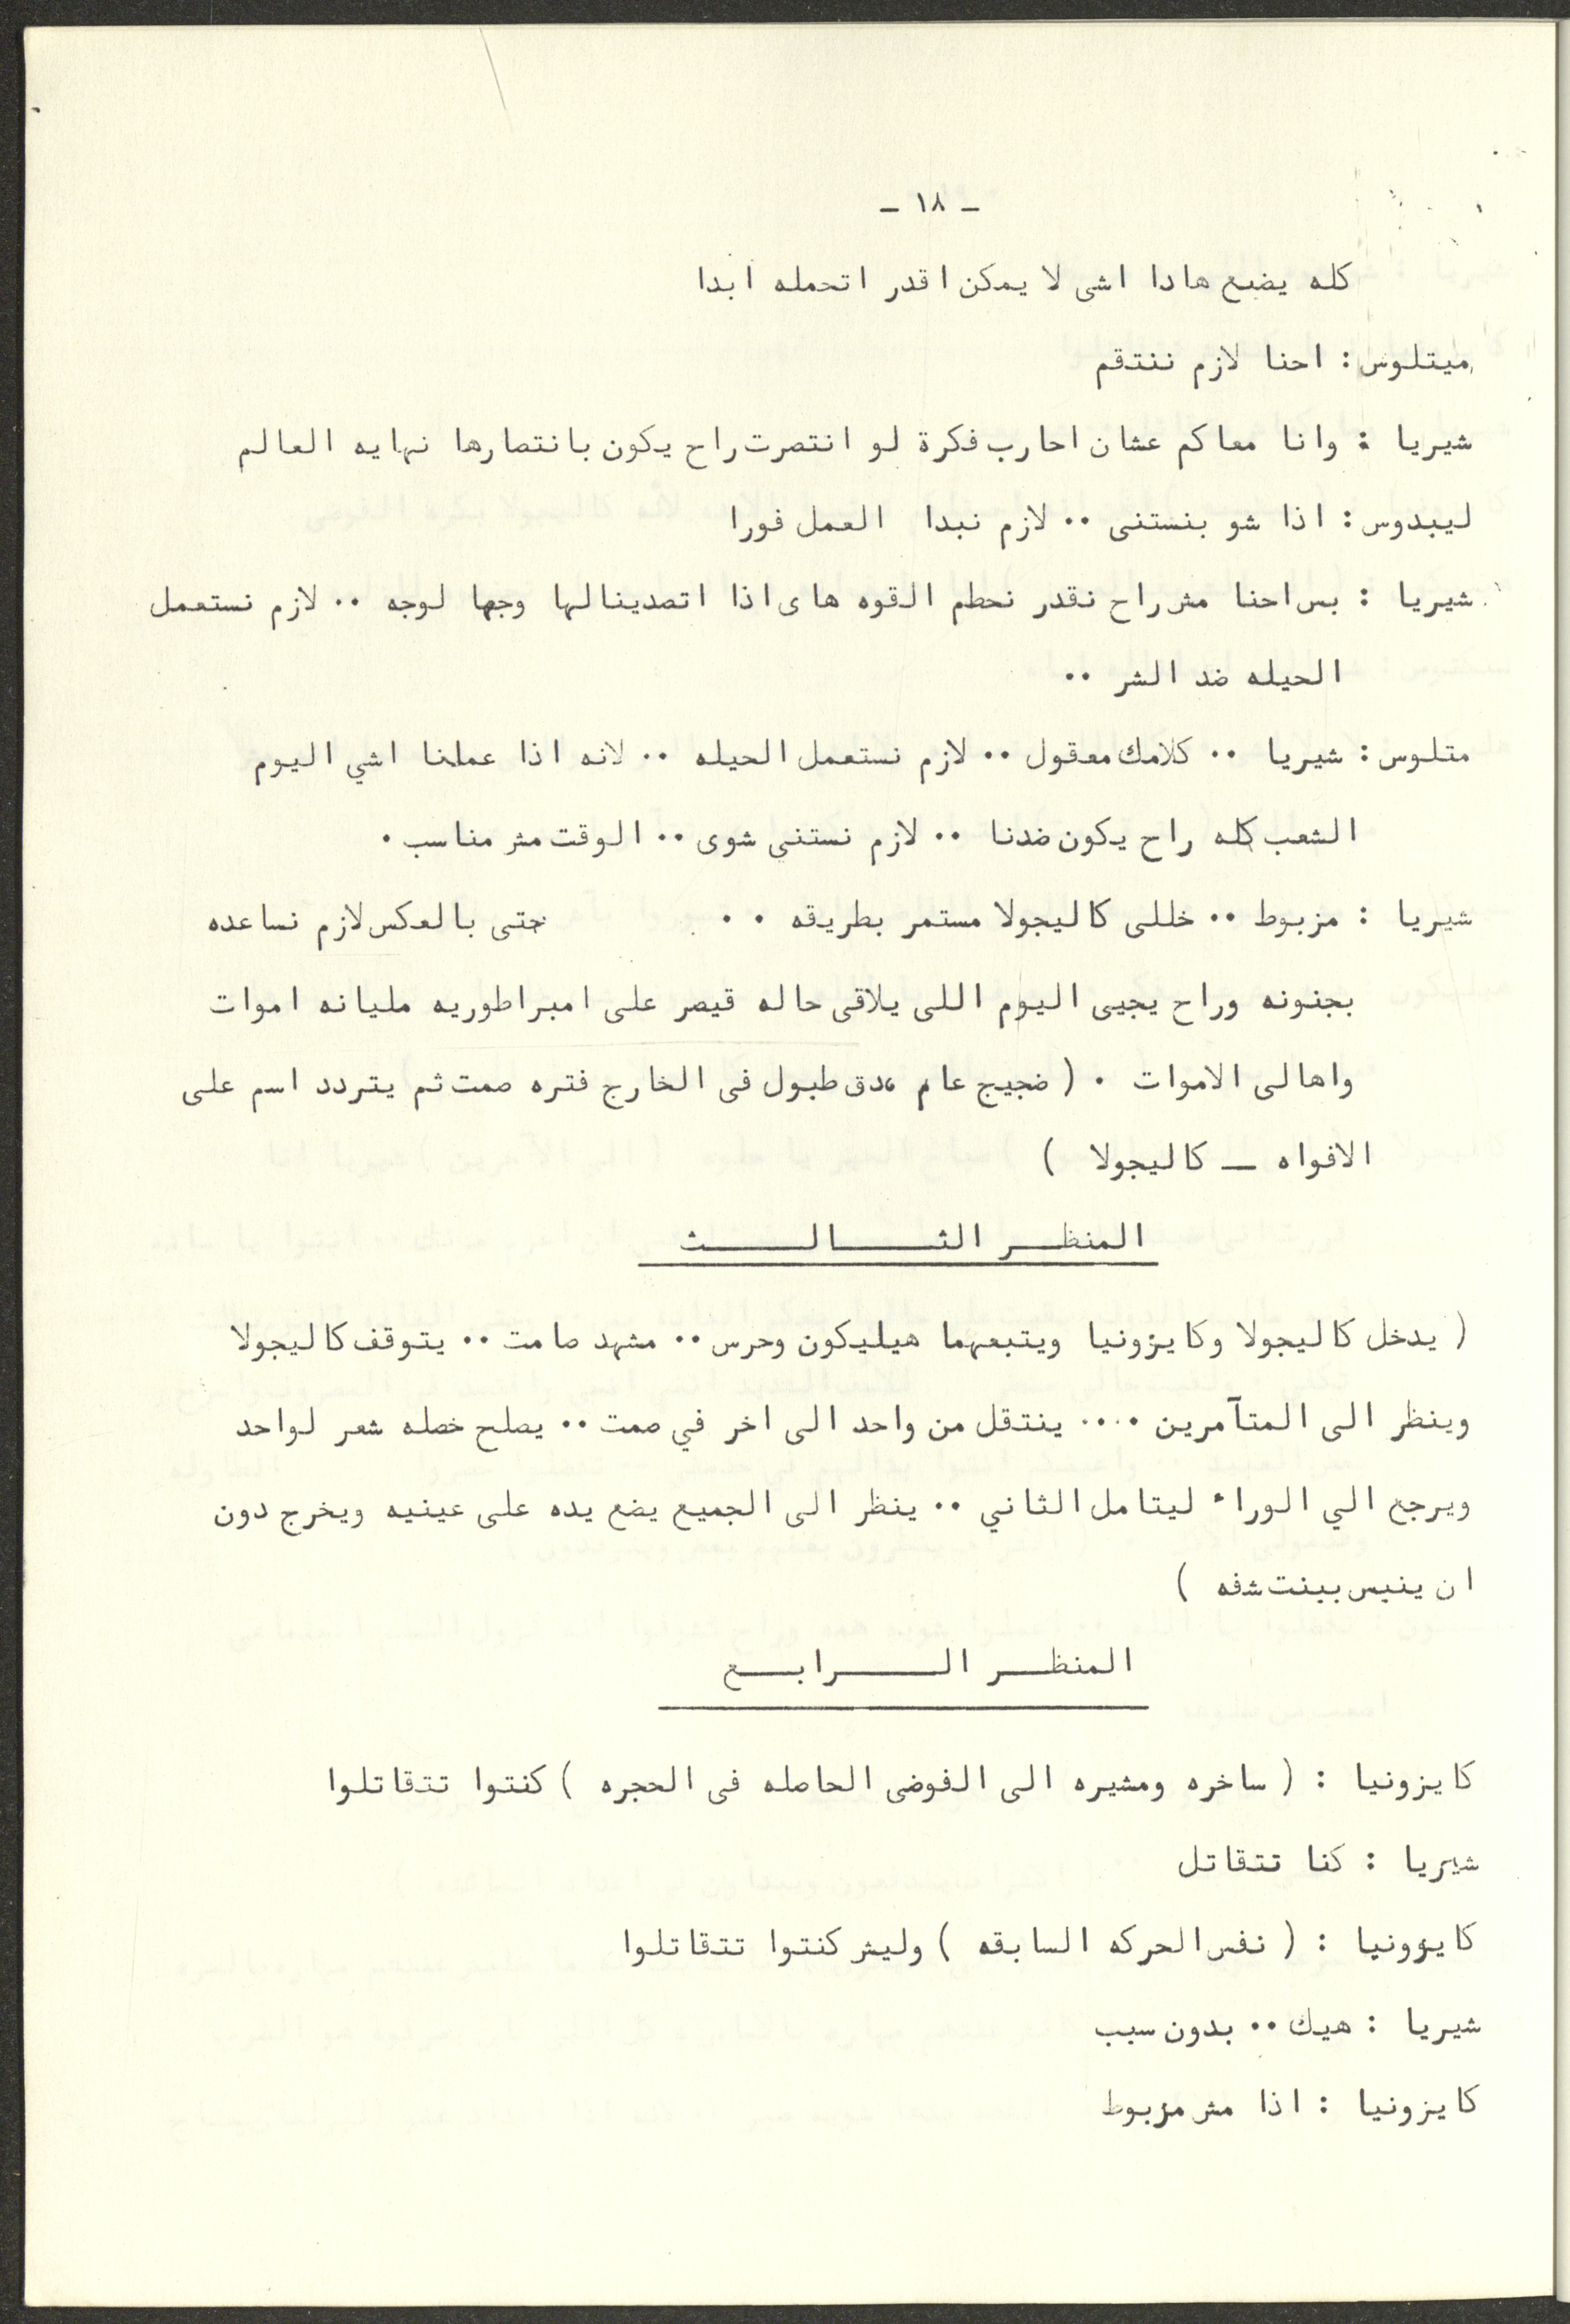 - ١٨ -
كله يضيع هادا اشى لا يمكن اقدر اتحمله ابدا
ميتلوس : احنا لازم ننتقم
شيريا : وانا معاكم عشان احارب فكرة لو انتصرت راح يكون بانتصارها نهايه العالم
ليبدوس : اذا شو بنستنى ٠٠ لازم نبدا العمل فورا
شيريا : بس احنا مش راح نقدر نحطم القوه هاى اذا اتصدينالها وجها لوجه ٠٠ لازم نستعمل
الحيله ضد الشر ٠٠
متلوس : شيريا ٠٠ كلامك معقول ٠٠ لازم نستعمل الحيله ٠٠ لانه اذا عملنا اشي اليوم
الشعب كله راح يكون ضدنا ٠٠ لازم نستنى شوى ٠٠ الوقت مش مناسب ٠
شيريا : مزبوط ٠٠ خللى كاليجولا مستمر بطريقه ٠٠ حتى بالعكس لازم نساعده
بجنونه وراح يجيى اليوم اللى يلاقى حاله قيصر على امبراطوريه مليانه اموات
واهالى الاموات ٠ ( ضجيج عام ،دق طبول فى الخارج فتره صمت ثم يتردد اسم على
الافواه ـ كاليجولا )
المنظر الثالث
( يدخل كاليجولا وكايزونيا ويتبعهما هيليكون وحرس ٠٠ مشهد صامت ٠٠ يتوقف كاليجولا
وينظر الى المتآمرين ٠٠٠٠ ينتقل من واحد الى اخر في صمت ٠٠ يصلح خصله شعر لواحد
ويرجع الي الوراء ليتامل الثاني ٠٠ ينظر الى الجميع يضع يده على عينيه ويخرج دون
ان ينبس ببنت شفه )
المنظر الرابع
كايزونيا : ( ساخره ومشيره الى الفوضى الحاصله فى الحجره ) كنتوا تتقاتلوا
شيريا : كنا تتقاتل
كايزونيا : ( نفس الحركه السابقه ) وليش كنتوا تتقاتلوا
شيريا : هيك ٠٠ بدون سبب
كايزونيا : اذا مش مزبوط